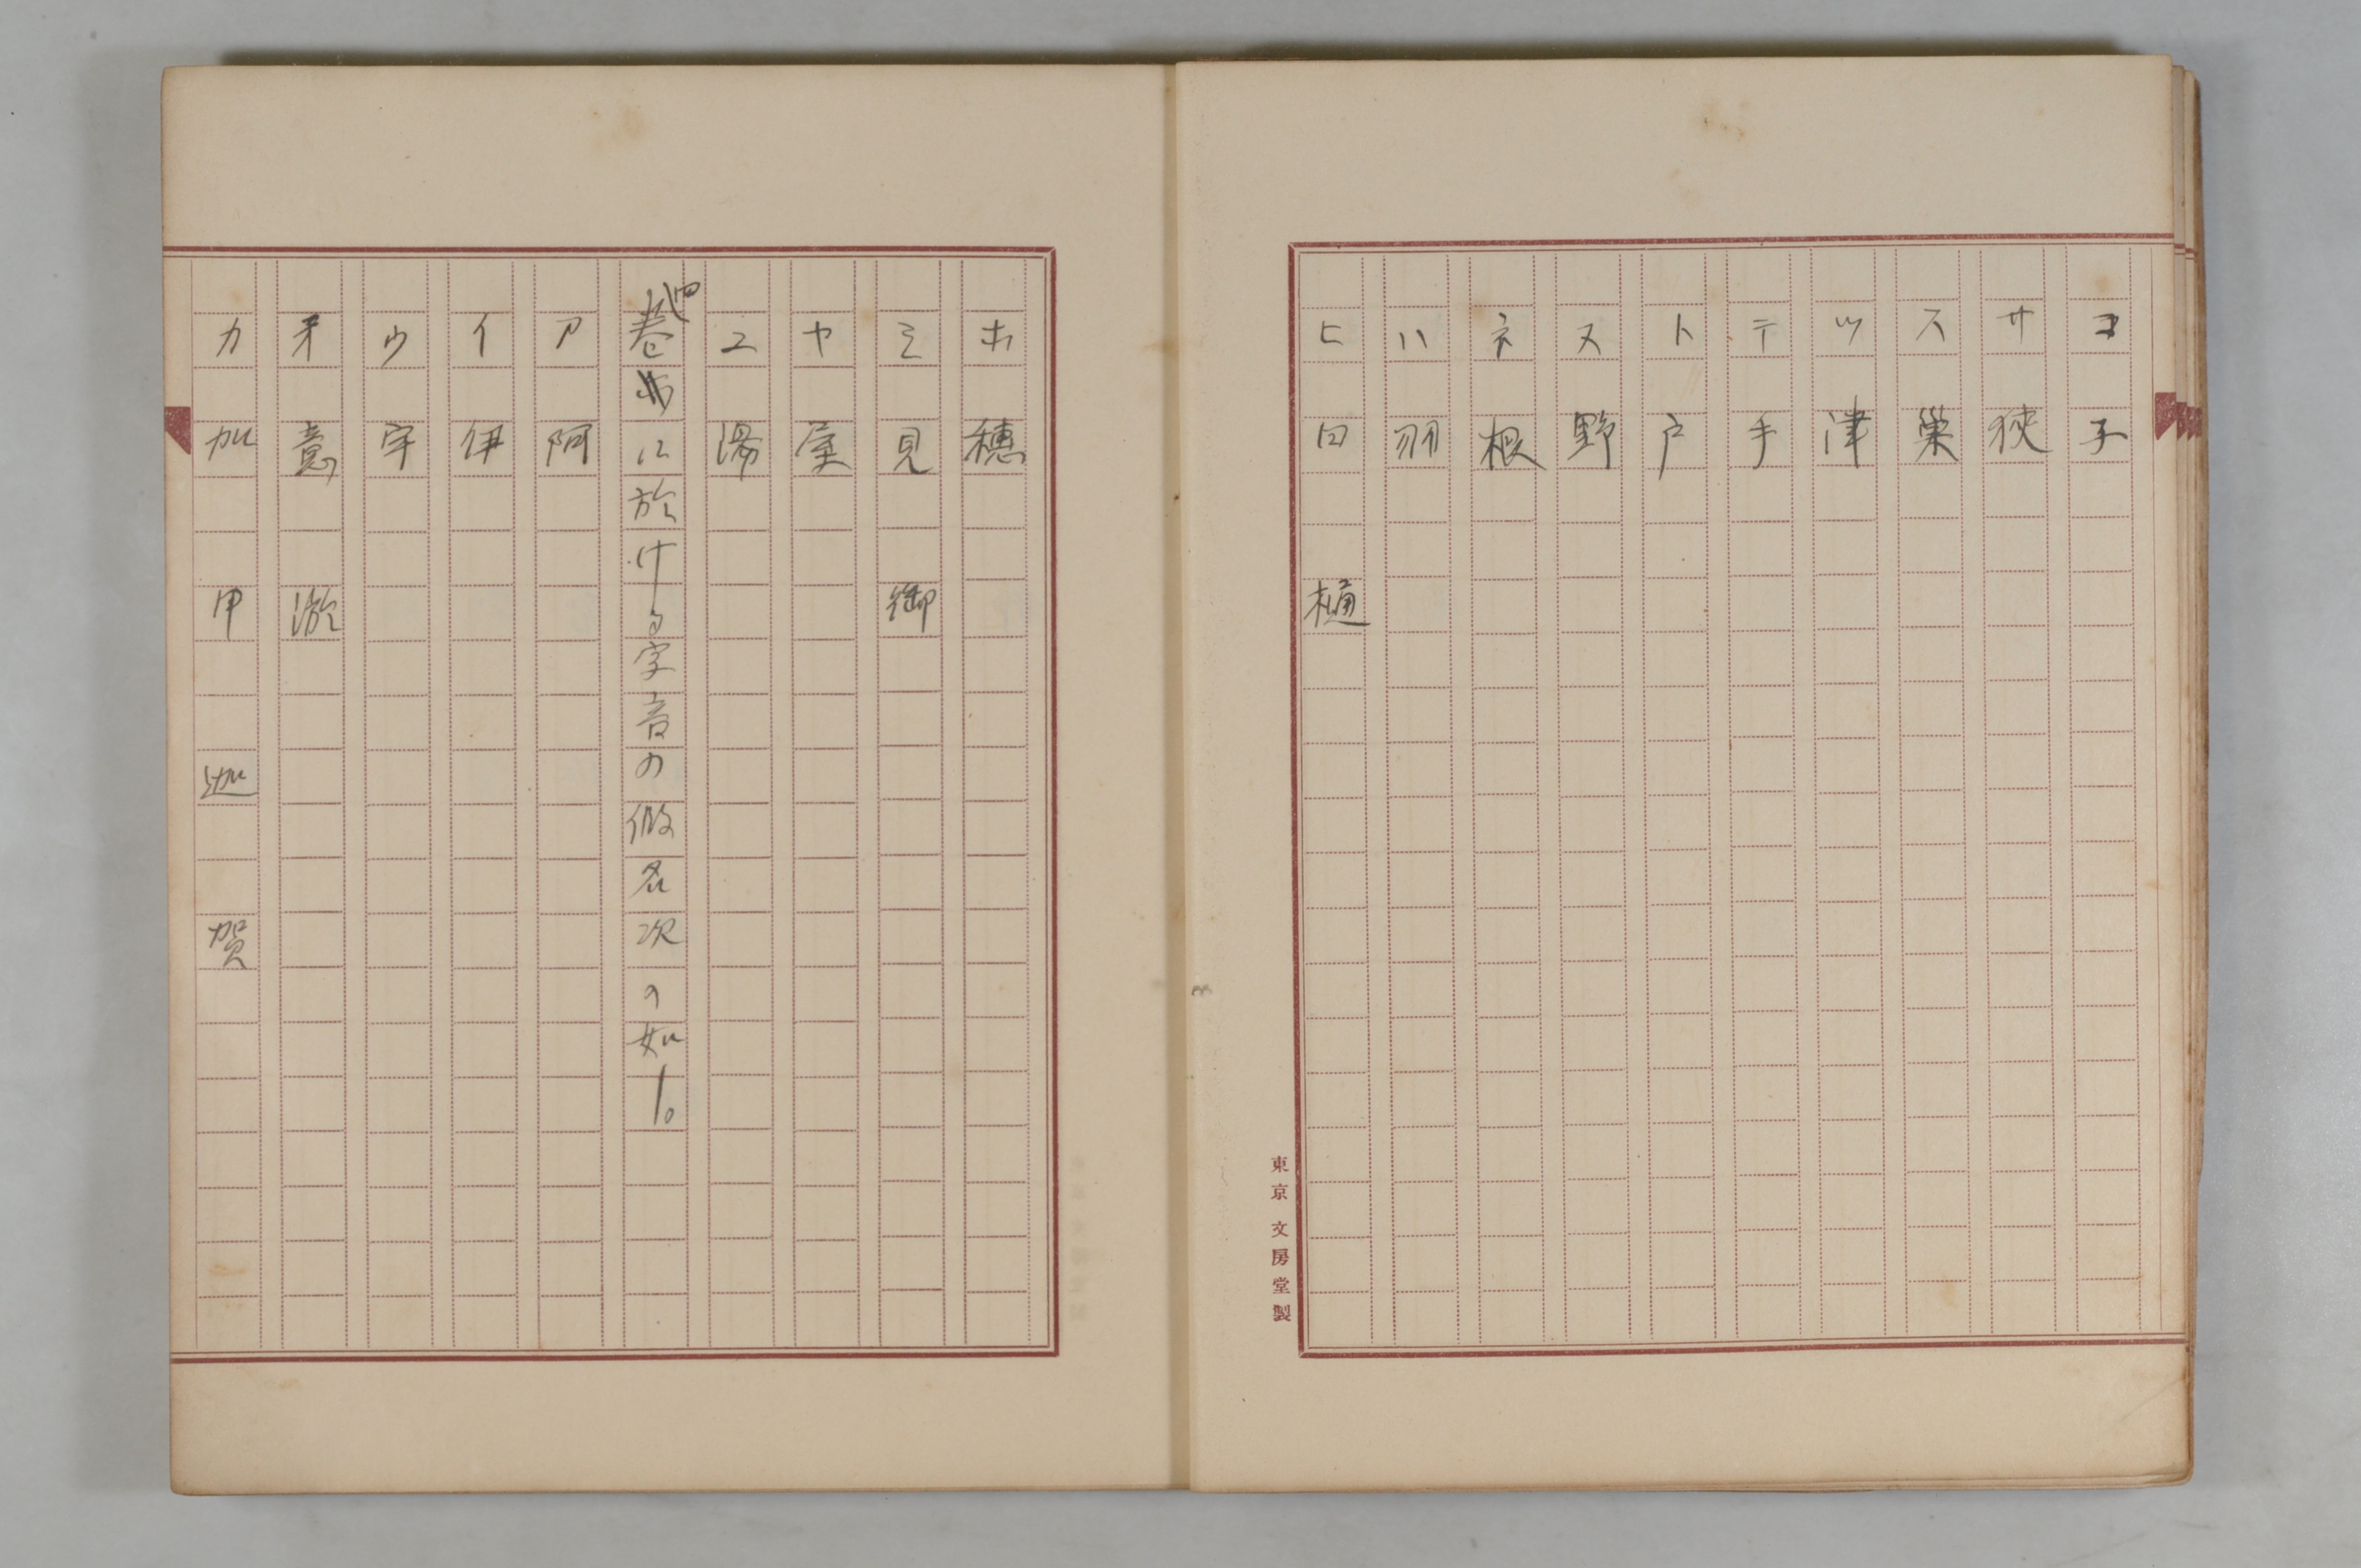 コ 子
サ 狹
ス 巣
ツ 津
テ 手
ト 戸
ヌ 野
ネ 根
ハ 羽
ヒ 日 樋
東京 文房堂製
ホ 穂
ミ 見 御
ヤ 屋
ユ 湯
四巻に於ける字音の假名次の如し。
ア 阿
イ 伊
ウ 宇
オ 意 淤
カ 加 甲 迦 賀